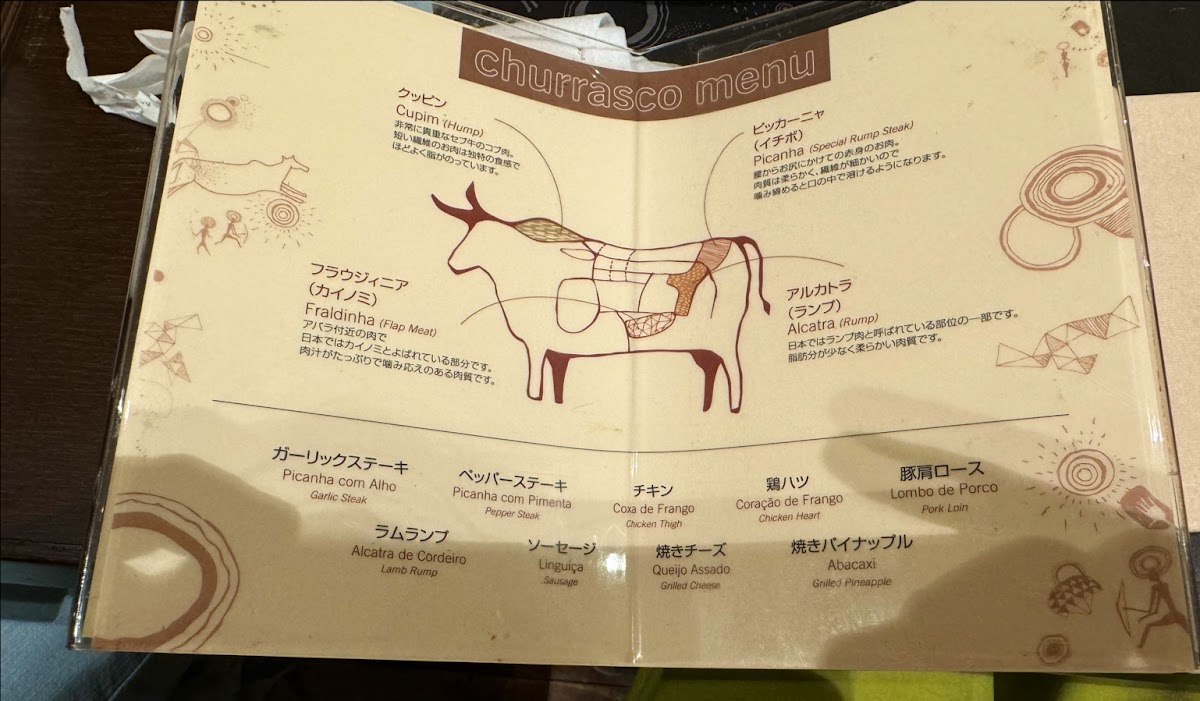 churrasco menu
クッピン
Cupim (Hump)
非常に貴重なセブ牛のコブ肉。
短い繊維のお肉は独特の食感で
ほどよく脂がのっています。
ピッカーニャ
（イチボ）
Picanha (Special Rump Steak)
腰からお尻にかけての赤身のお肉。
肉質は柔らかく、繊維が細かいので
噛み締めると口の中で溶けるようになります。
フラウジィニア
（カイノミ）
Fraldinha (Flap Meat)
アバラ付近の肉で
日本ではカイノミとよばれている部分です。
肉汁がたっぷりで噛み応えのある肉質です。
アルカトラ
（ランプ）
Alcatra (Rump)
日本ではランプ肉と呼ばれている部位の一部です。
脂肪分が少なく柔らかい肉質です。
ガーリックステーキ
Picanha com Alho
Garlic Steak
ペッパーステーキ
Picanha com Pimenta
Pepper Steak
チキン
Coxa de Frango
Chicken Thigh
鶏ハツ
Coração de Frango
Chicken Heart
豚肩ロース
Lombo de Porco
Pork Loin
ラムランプ
Alcatra de Cordeiro
Lamb Rump
ソーセージ
Linguiça
Sausage
焼きチーズ
Queijo Assado
Grilled Cheese
焼きパイナップル
Abacaxi
Grilled Pineapple